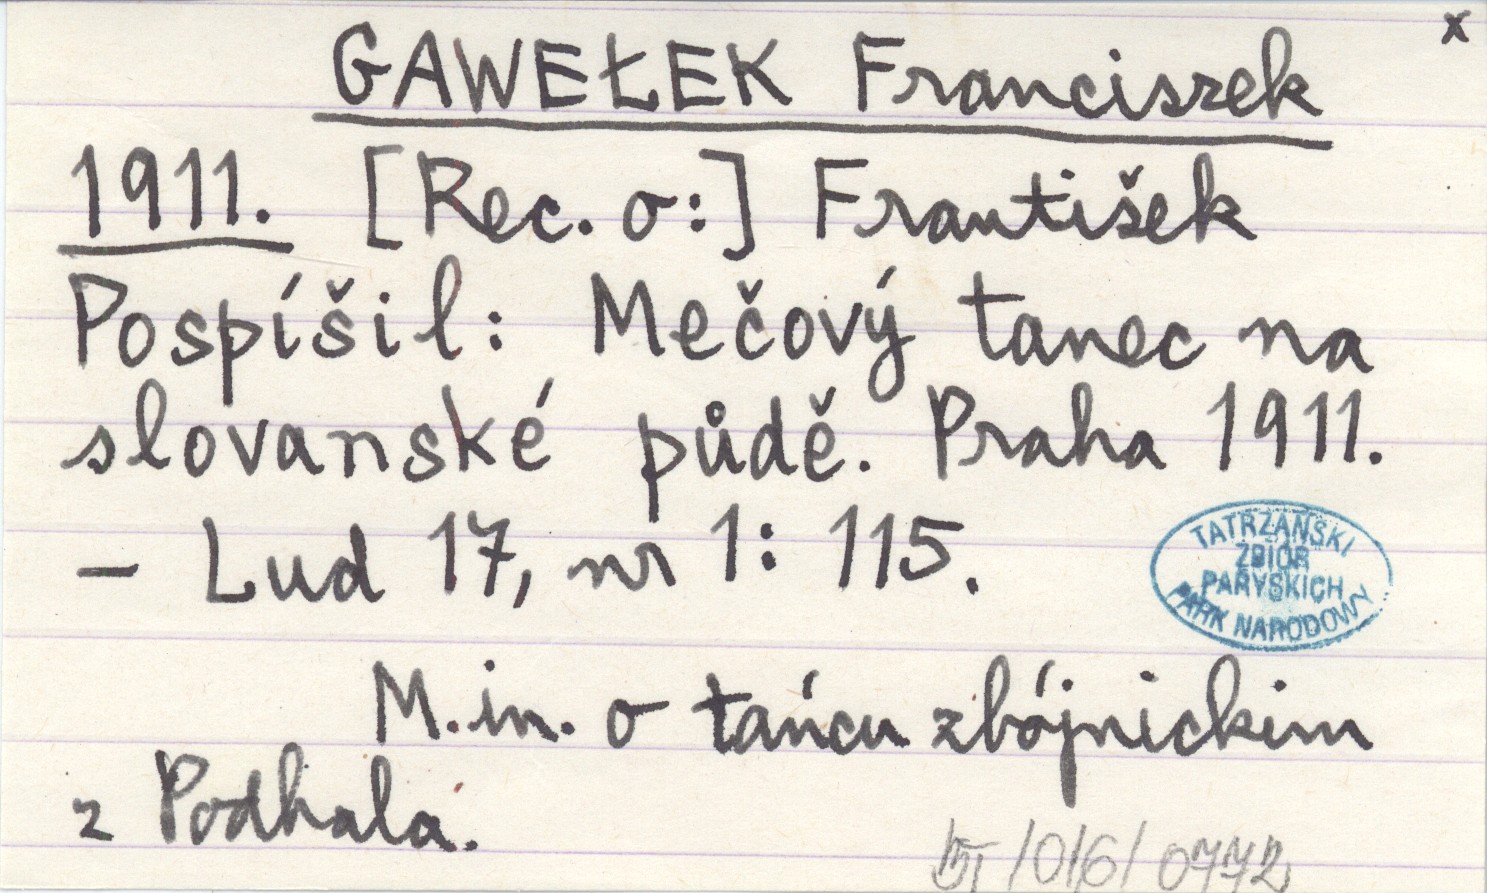 x
GAWEŁEK Franciszek
1911. [Rec. o:] František
Pospíšil: Mečový tanec na
slovanské půdě. Praha 1911.
– Lud 17, nr 1: 115.
TATRZAŃSKI
ZBIÓR
PARYSKICH
PARK NARODOWY
M.in. o tańcu zbójnickim
z Podhala.
/0/6/ 0772